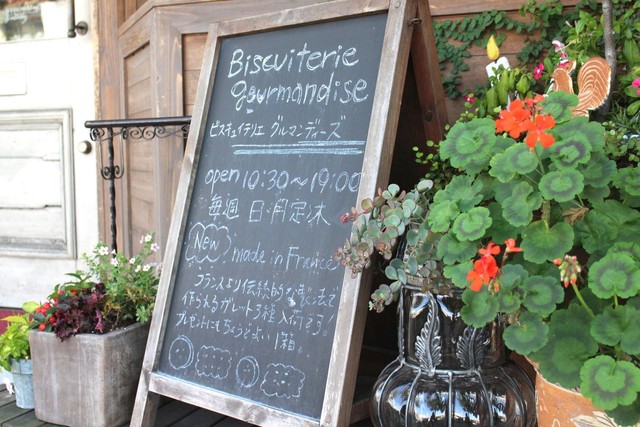 Biscuiterie
gourmandise
ビスキュイテリエ グルマンディーズ
open 10:30～19:00
毎週 日・月定・木
New made in France
フランスより伝統的な製法で
作られるガレート3種入荷です!
プレゼントにもちょうどよい1箱。